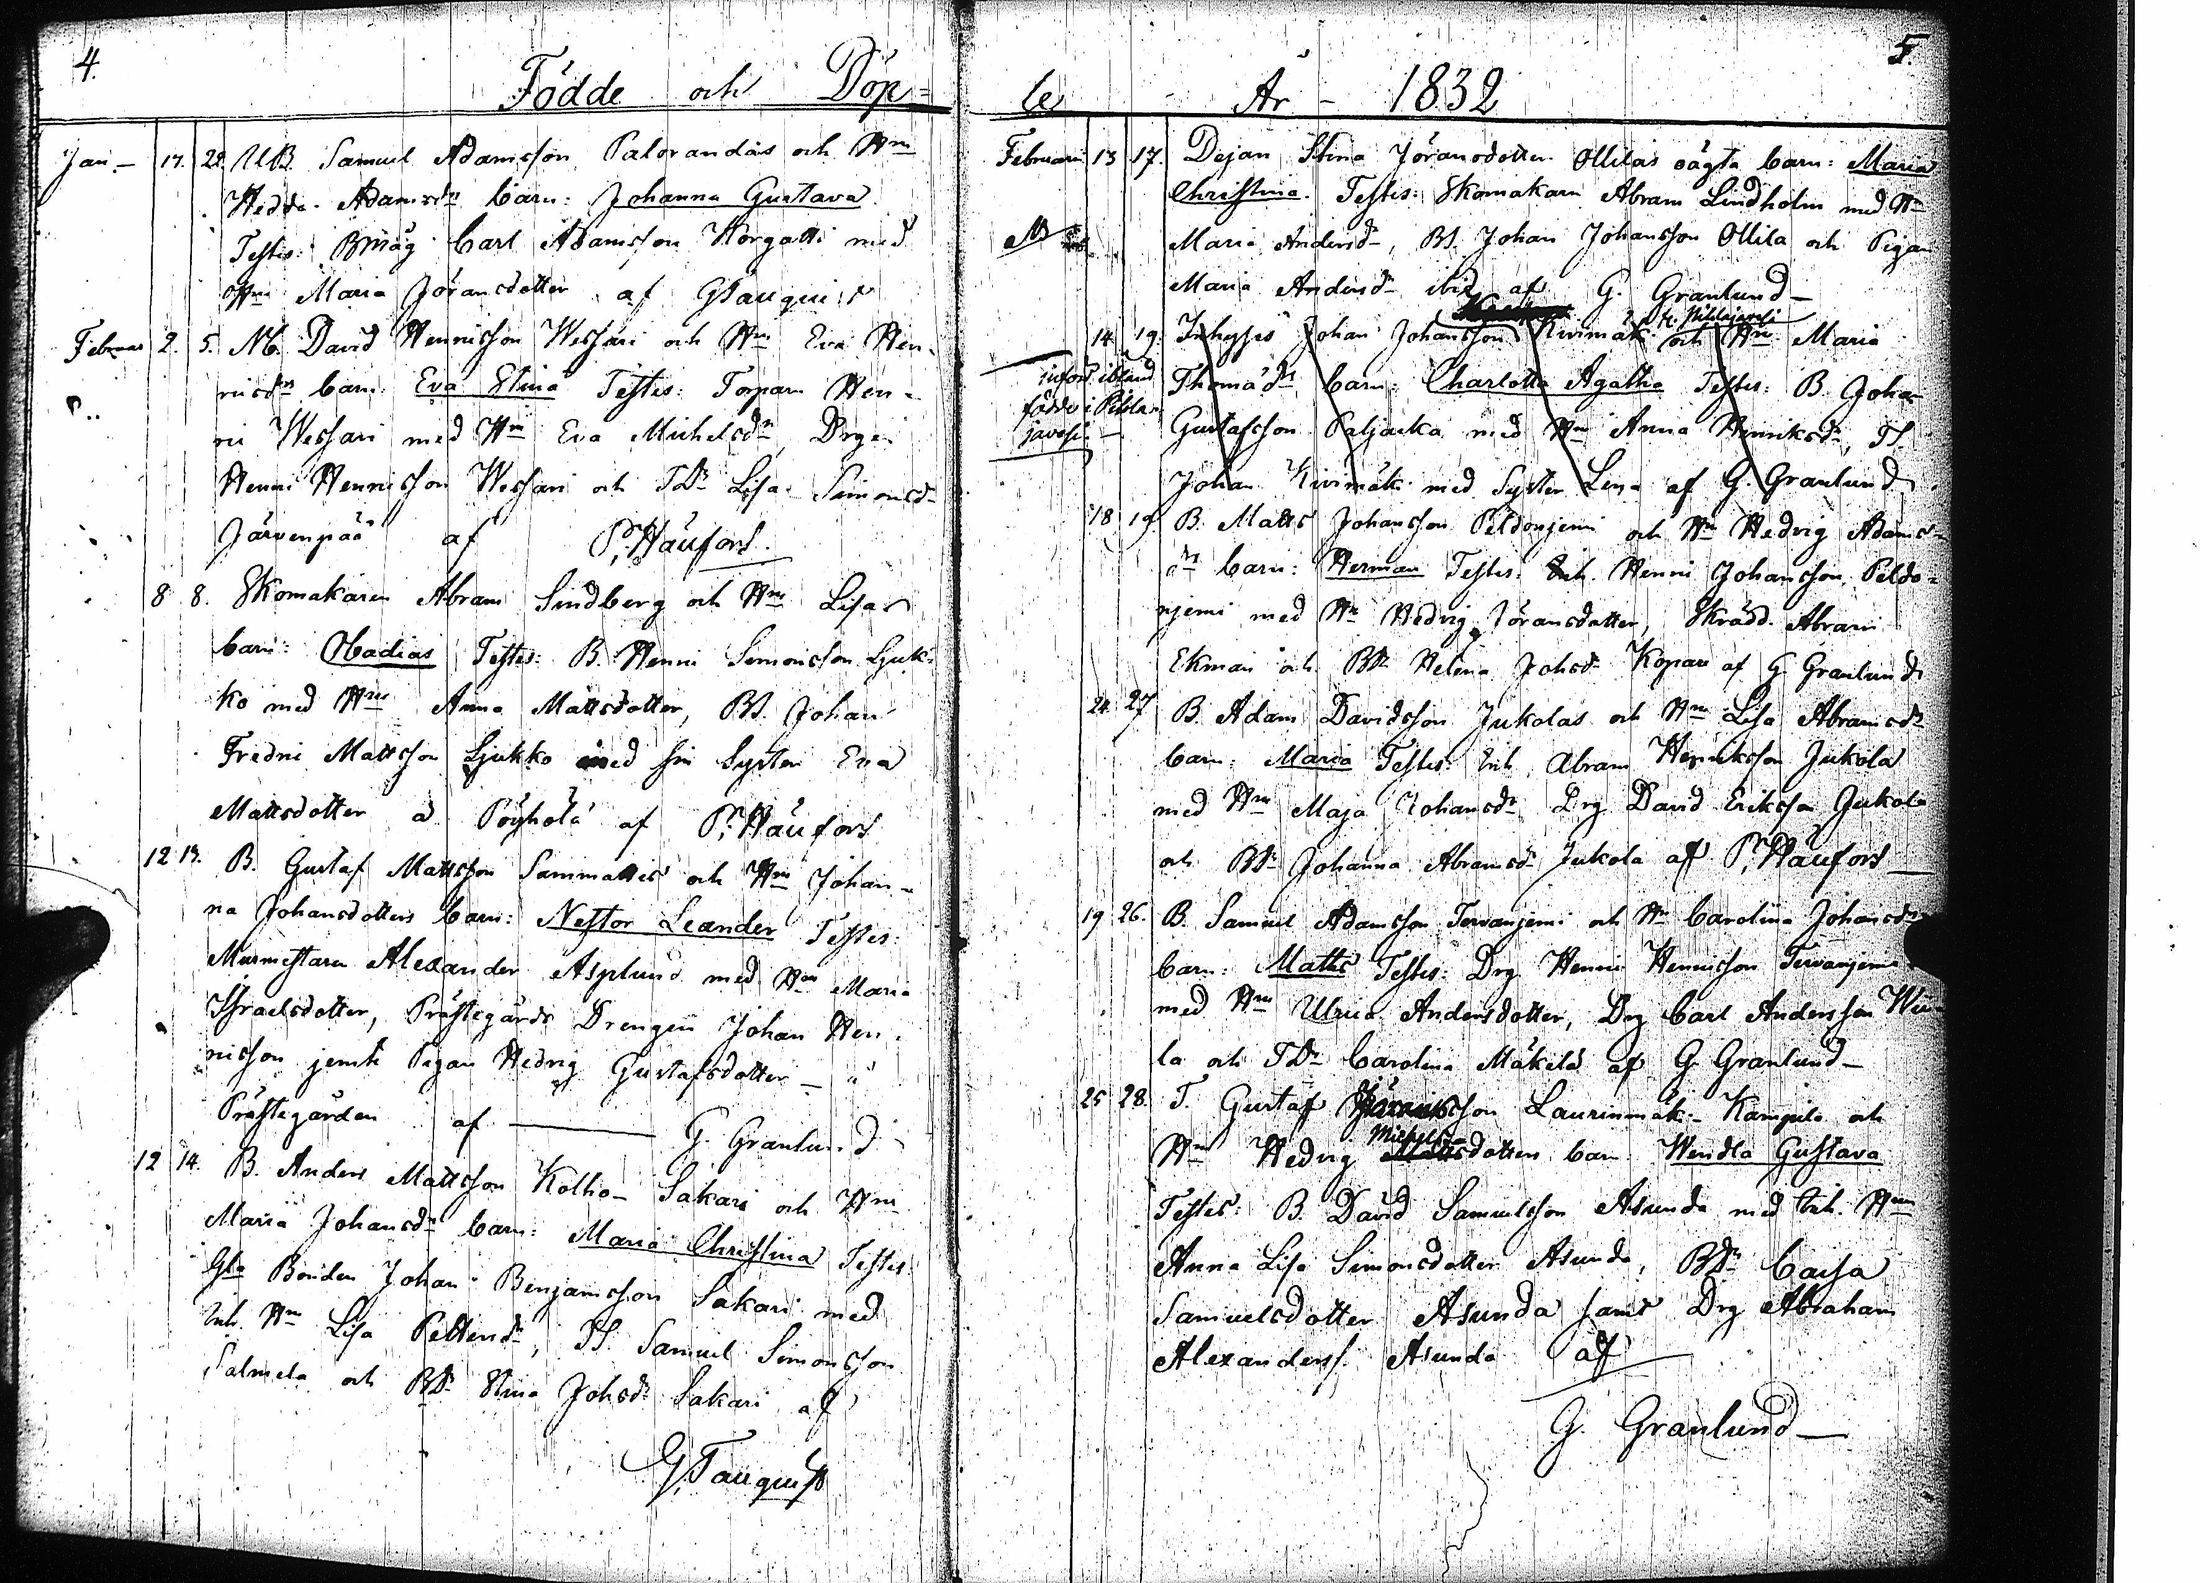 4.
Födde och Döp=
Jan. — 17. 22. UB. Samuel Adamsson Palorandas och Hm
Hedda Adamsdrs barn: Johanna Gustava
Testes: Bmåg Carl Adamsson Korgatti med
Hm Maria Jöransdotter af GTauquist
Februar 2. 5. Nb. David Hennisson Wessari och Hm Eva Hen-
nisdrs barn Eva Stina Testes: Torparn Hen-
ni Wessari med Hm Eva Michelsdr, Drgn
Henni Hennisson Wessari och TDr Lisa Simonsdr
Järvenpää af P. Häufors.
8 8. Skomakaren Abram Lindberg och Hm Lisas
barn: Obadias Testes: B. Henni Simonsson Ljuk-
ko med Hm Anna Mattsdotter, BS. Johan
Fredric Mattsson Ljukko med sin Syster Eva
Mattsdotter a Pöyhölä af P. Häufors
12 13. B. Gustaf Mattsson Sammattis och Hm Johan-
na Johansdotters barn: Nestor Leander Testes:
Murmestaren Alexander Asplund med Hm Maria
Israelsdotter, Prästegårds Drengen Johan Hen-
nisson jemte Pigan Hedvig Gustafsdotter — å
Prästegården af — G. Granlund
12 14. B. Anders Mattsson Kolho- Sakari och Hm
Maria Johansdrs barn: Maria Christina Testes
Gla Bonden Johan Benjamsson Sakari med
Enh. Hm Lisa Pettersdr, TS. Samuel Simonsson
Salmela och BDr Stina Johsdr Sakari af
G. Tauquist
5.
te År — 1832
Februari 13 17. Dejan Stina Jöransdotter Ollilas oägta barn: Maria
Christina. Testes: Skomakarn Abram Lindholm med Hm
Maria Andersdr, BS. Johan Johansson Ollila och Pigan
Maria Andersdr ibid af G. Granlund —
14. 19. Inhyses Johan Johansson Kivimäk och Hm Maria
införd ibland
födde i
Thomædrs barn: Charlotta Agatha Testes: B. Johan
Gustafsson Paljacka med Hm Anna Henriksdr, TS.
Johan Kivimäk med Syster Lena af G. Granlund
18 19. B. Matts Johansson Peldonjemi och Hm Hedvig Adams-
drs barn: Herman Testes: Enh. Henni Johansson Peldo-
njemi med Hm Hedvig Jöransdotter, Skrädd. Abram
Ekman och BDr Helena Johsdr Kopari af G. Granlund
24. 27 B. Adam Davidsson Jukolas och Hm Lisa Abramsdrs
barn: Maria Testes: Enh. Abram Henriksson Jukola
med Hm Maja Johansdr Drg David Eriksson Jukola
och BDr Johanna Abramsdr Jukola af P. Häufors —
19 26. B. Samuel Adamsson Tervanjemi och Hm Carolina Johansdrs
barn: Matts Testes: Drg Henni Hennisson Tervanjemi
med Hm Ulrica Andersdotter, Drg Carl Andersson
la och TDr Carolina Mäkelä af G. Granlund —
25 28. T. Gustaf Laurinmäk- Kampila och
Michels
Hm Hedvig dotters barn Wendla Gustava
Testes: B. David Samuelsson Asunda med Enh. Hm
Anna Lisa Simonsdotter Asunda, BDr Caisa
Samuelsdotter Asunda samt Drg Abraham
Alexanders. Asunda af
G. Granlund —